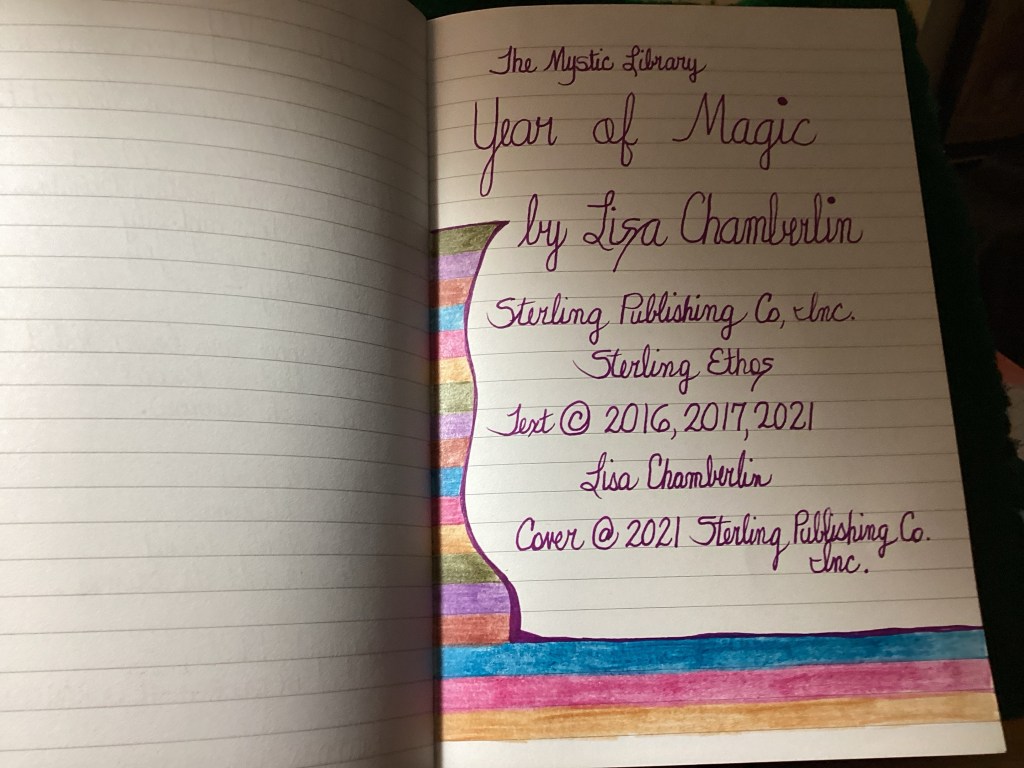 The Mystic Library
Year of Magic
by Lisa Chamberlin
Sterling Publishing Co, Inc.
Sterling Ethos
Text © 2016, 2017, 2021
Lisa Chamberlin
Cover @ 2021 Sterling Publishing Co.
Inc.